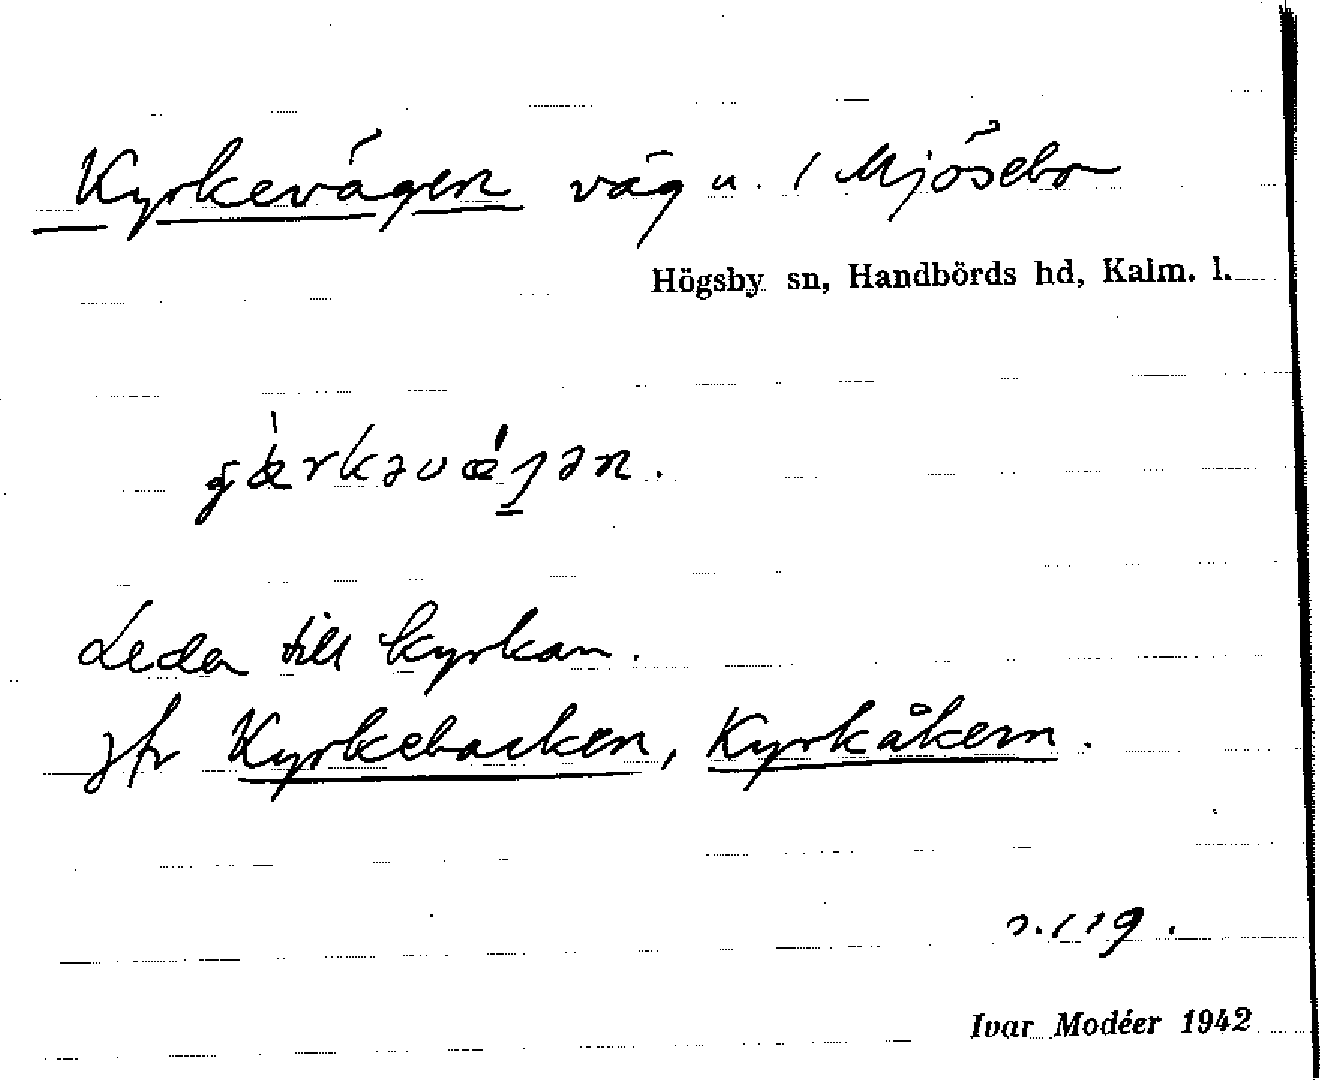 Kyrkevägen väg u. / Mjösebo
Högsby sn, Handbörds hd, Kalm. l.
Leder till kyrkan.
Jfr Kyrkebacken, Kyrkåkern.
s. 119.
Ivar Modéer 1942